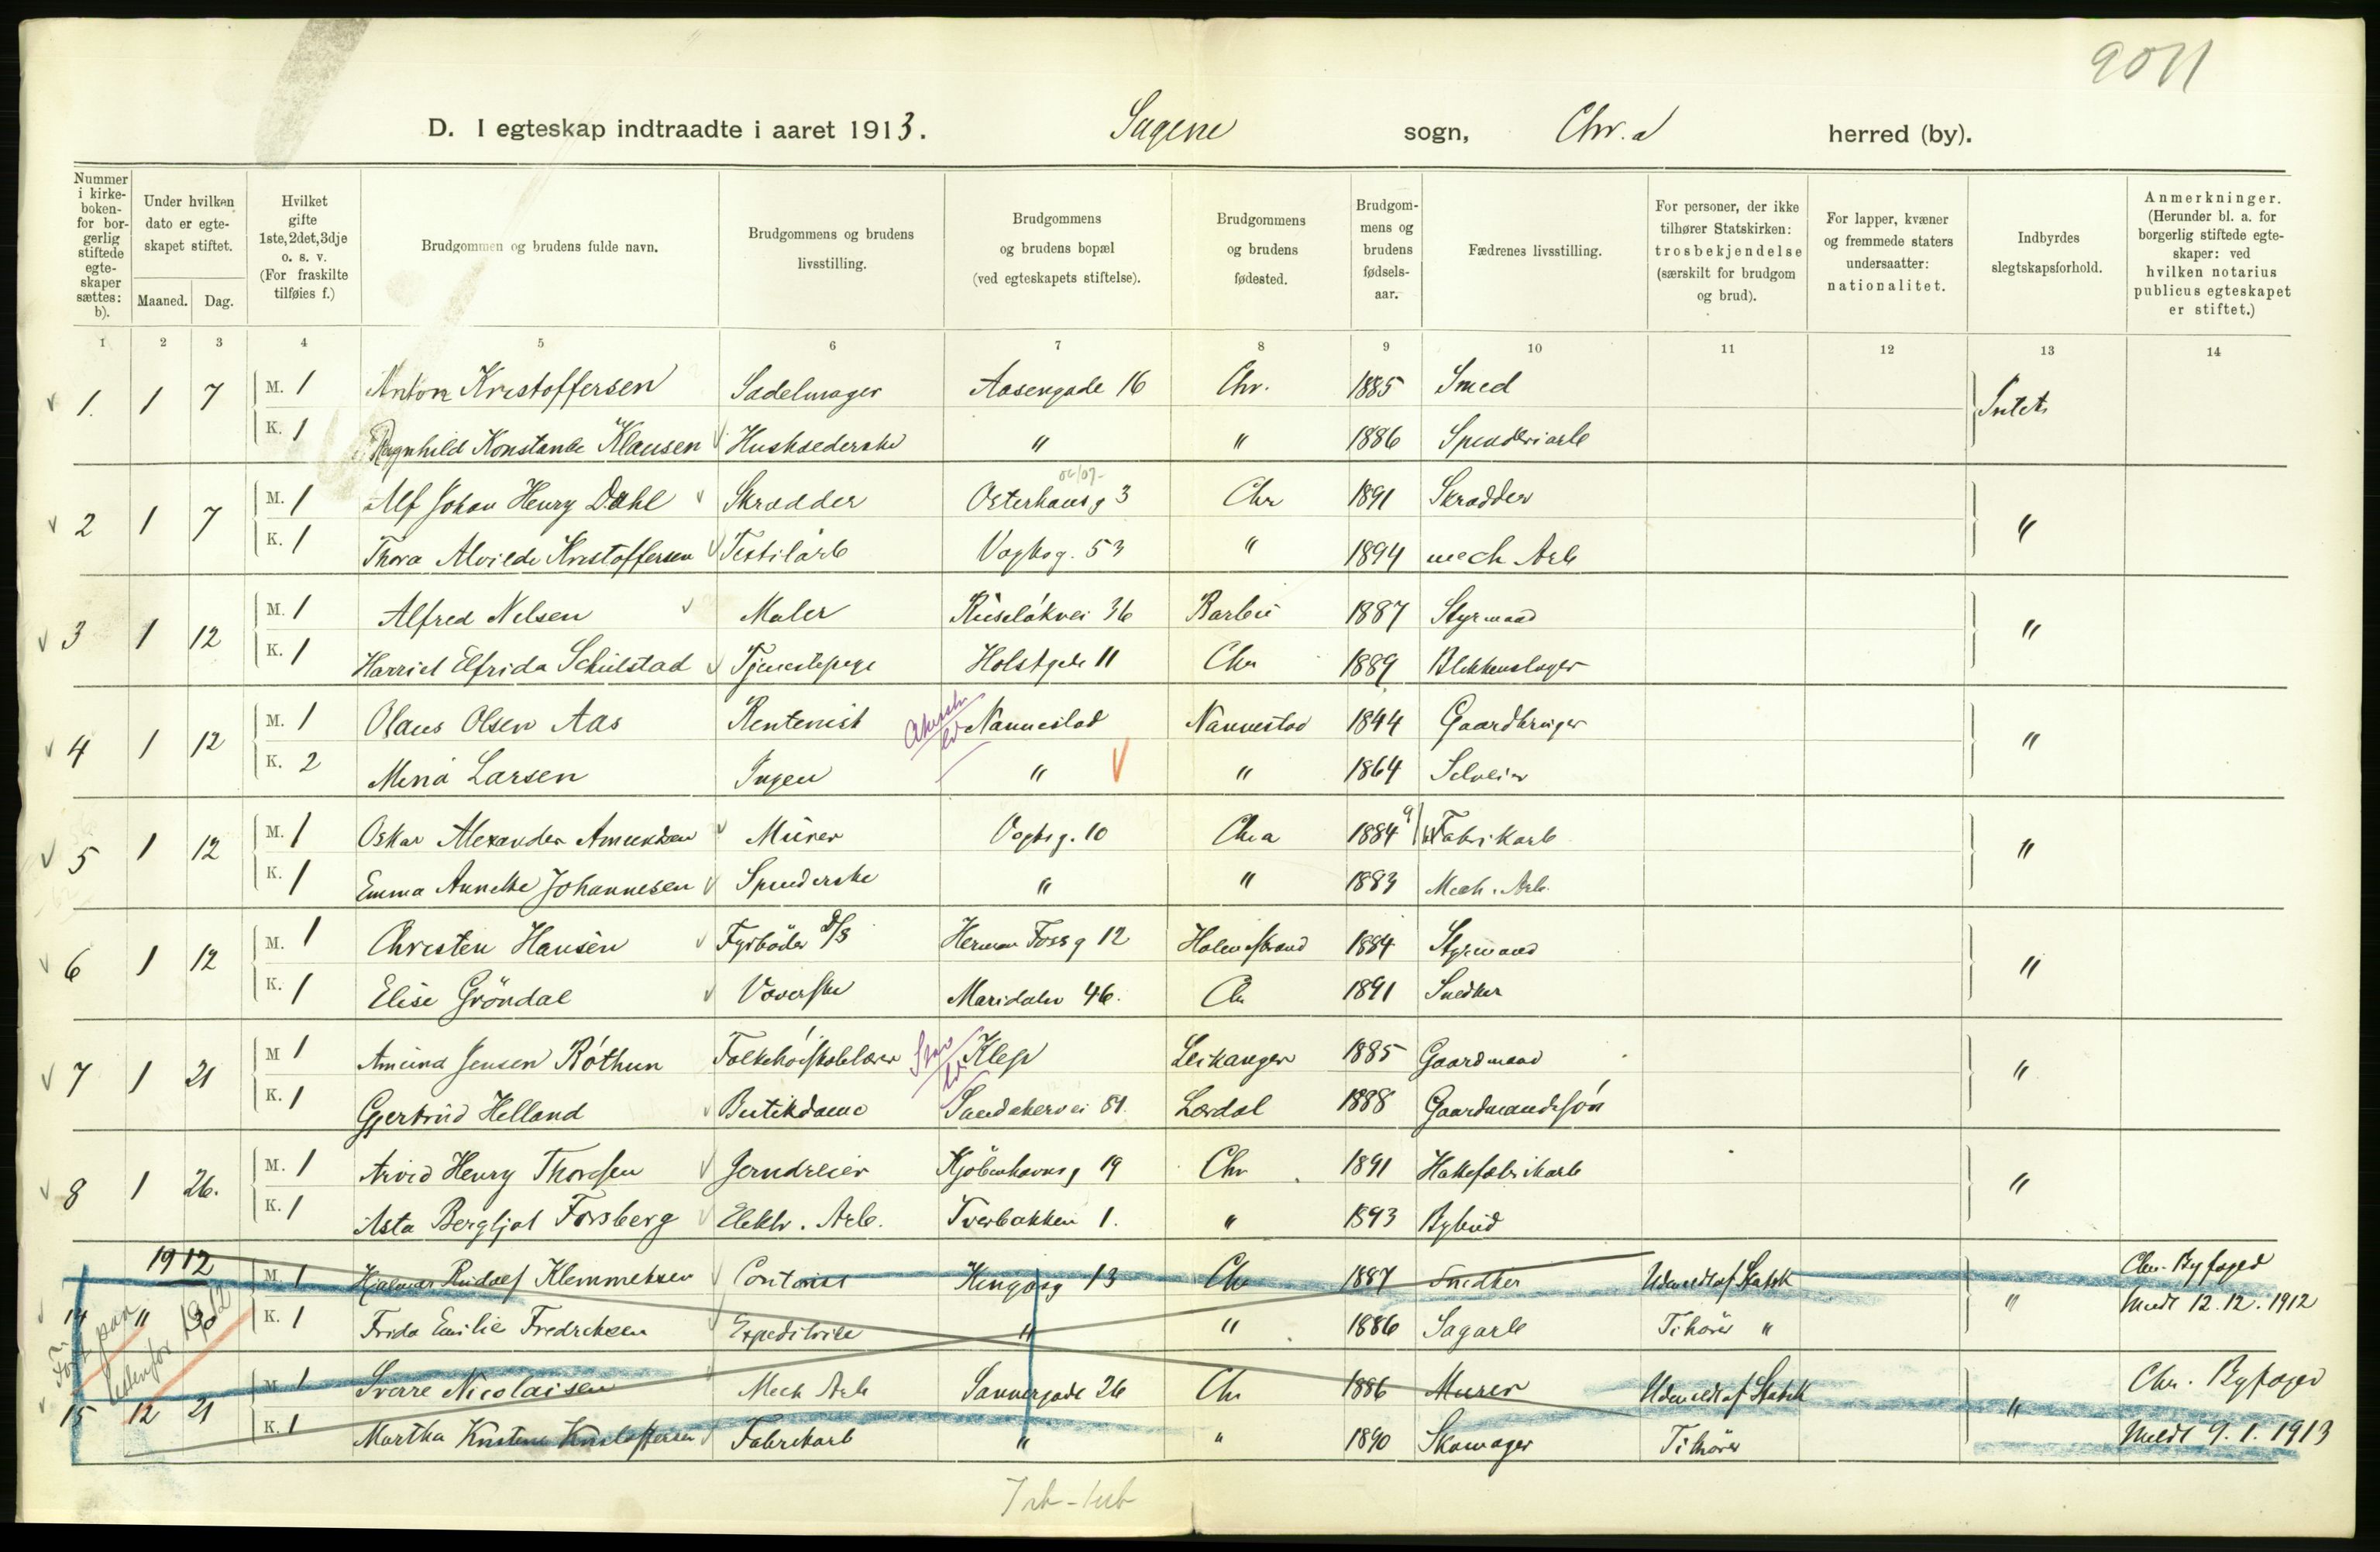 9011
D. I egteskap indtraadte i aaret 1913. Sagene sogn, Chr.a herred (by).
Nummer i kirke-boken- for bor-gerlig stiftede egte-skaper sættes: b).
Under hvilken dato er egte-skapet stiftet.
Maaned. Dag.
Hvilket gifte 1ste, 2det, 3dje o. s. v. (For fraskilte tilføies f.)
Brudgommen og brudens fulde navn.
Brudgommens og brudens livsstilling.
Brudgommens og brudens bopæl (ved egteskapets stiftelse).
Brudgommens og brudens fødested.
Brudgom-mens og brudens fødsels-aar.
Fædrenes livsstilling.
For personer, der ikke tilhører Statskirken: trosbekjendelse (særskilt for brudgom og brud).
For lapper, kvæner og fremmede staters undersaatter: nationalitet.
Indbyrdes slegtskapsforhold.
Anmerkninger. (Herunder bl. a. for borgerlig stiftede egte-skaper: ved hvilken notarius publicus egteskapet er stiftet.)
1 2 3 4 5 6 7 8 9 10 11 12 13 14
1. 1 7 M. 1 Anton Kristoffersen Sadelmager Aasengade 16 Chr. 1885 Smed Intet
K. 1 Ragnhild Konstanse Klausen Husholderske " " 1886 Spinderiarb
2 1 7 M. 1 Alf Johan Henry Dahl Skrædder Osterhausg 3 Chr 1891 Skrædder "
K. 1 Thora Alvilde Kristoffersen Textilarb Vogtsg. 53 " 1894 mech Arb
3 1 12 M. 1 Alfred Nelsen Maler Ruseløkvei 36 1887 Styrmand "
K. 1 Harriet Elfrida Schulstad Tjenestepige Holstgde 11 Chr 1889 Blikkenslager
4 1 12 M. 1 Olaus Olsen Aas Rentenist Nannestad Nannestad 1844 Gaardbruger "
K. 2 Mina Larsen Ingen " " 1864 Selveier
5 1 12 M. 1 Oskar Alexander Amundsen Murer Vogtsg. 10 Chr.a 1884 Fabrikarb "
K. 1 Emma Annette Johannesen Spinderske " " 1883 Mech. Arb.
6 1 12 M. 1 Christen Hansen Fyrbøder D/S Herman Foss g 12 Holmestrand 1884 Styrmand "
K. 1 Elise Gröndal Væverske Maridalsv 46. Chr 1891 Snedker
7 1 21 M 1 Amund Jensen Röthun Folkehøiskolelærer Klep Leikanger 1885 Gaardmand "
K. 1 Gjertrud Helland Butikdame Sandakervei 81. Lærdal 1888 Gaardmandssøn
8 1 26. M. 1 Arvid Henry Thoresen Jerndreier Kjøbenhavnsg 19 Chr 1891 Hakefabrikarb "
K. 1 Asta Bergljot Forsberg Elektr. Arb. Tverbakken 1. " 1893 Bybud
1912
14 " 30 M. 1 Hjalmar Rudolf Klemmetsen Contorist Kingosg 13 Chr 1887 Snedker Udmeldt af Statsk " Chr. Byfoged
K. 1 Frida Emilie Fredriksen Expeditrice " " 1886 Sagarb Tihører " Meldt 12.12.1912
15 12 21 M 1 Sverre Nicolaisen Mech Arb Sannergade 26 Chr 1886 Murer Udmeldt af Statsk " Chr. Byfoged
K. 1 Martha Kristine Kristoffersen Fabrikarb " " 1890 Skomager Tihører Meldt 9.1.1913